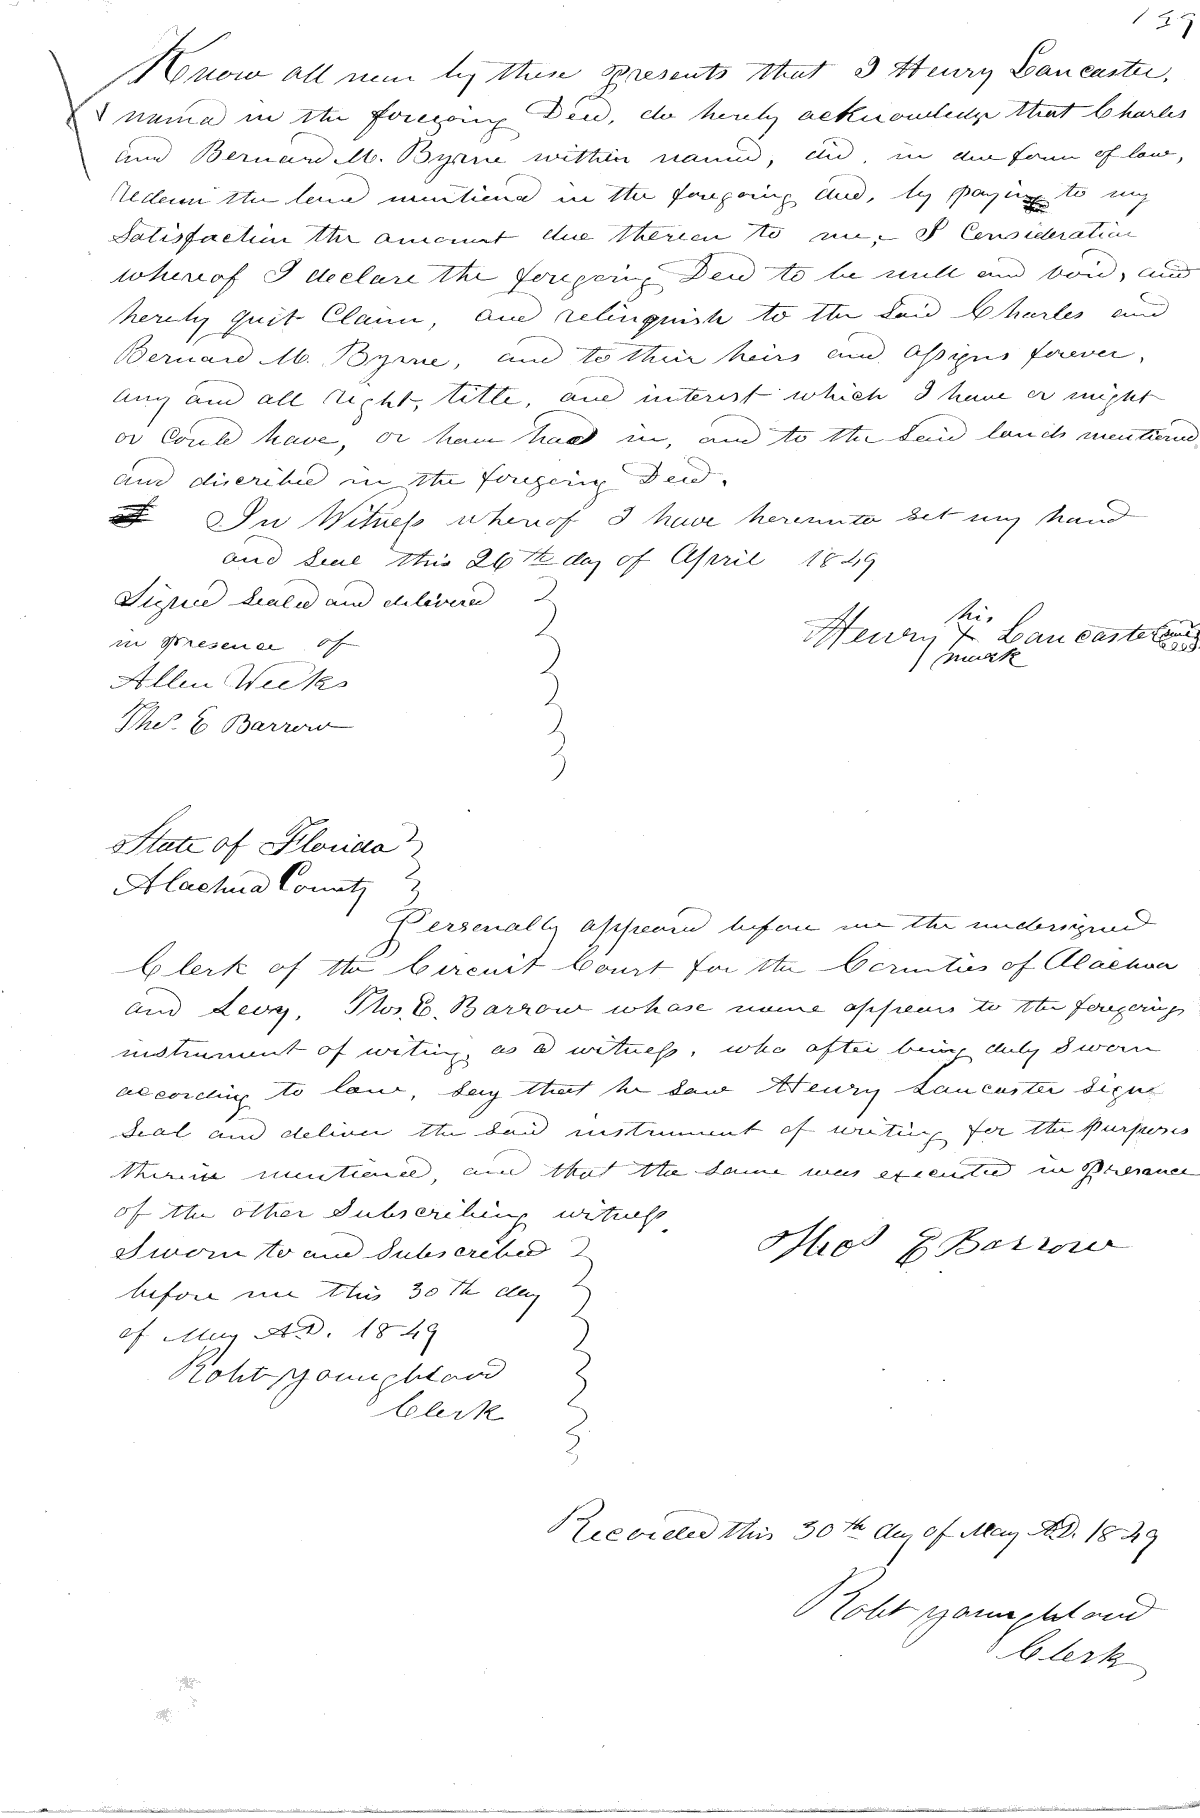 139
Know all men by these presents that I Henry Lancaster,
named in the foregoing Deed, do hereby acknowledge that Charles
and Bernard M. Byrne within named, did, in due form of law,
redeem the land mentioned in the foregoing deed, by paying to my
Satisfaction the amount due thereon to me, - I Consideration
whereof I declare the foregoing Deed to be null and void, and
hereby quit Claim, and relinquish to the Said Charles and
Bernard M. Byrne, and to their heirs and assigns forever,
any and all right, title, and interest which I have or might
or Could have, or have had in, and to the Said lands mentioned
and discribed in the foregoing Deed.
In Witness whereof I have hereunto Set my hand
and Seal this 26th day of April 1849
Signed Sealed and delivered
in presence of
Allen Weeks
Thos. E Barrow
his
Henry X Lancaster
mark
State of Florida
Alachua County
Personally appeared before me the undersigned
Clerk of the Circuit Court for the Counties of Alachua
and Levy, Thos. E. Barrow whose name appears to the foregoing
instrument of writing, as a witness, who after being duly Sworn
according to law, Say that he Saw Henry Lancaster Sign
Seal and deliver the Said instrument of writing for the purposes
therein mentioned, and that the Same was executed in presence
of the other Subscribing witness.
Thos E Barrow
Sworn to and Subscribed
before me this 30th day
of May A.D. 1849
Robt Youngblood
Clerk
Recorded this 30th day of May A.D. 1849
Robt Youngblood
Clerk